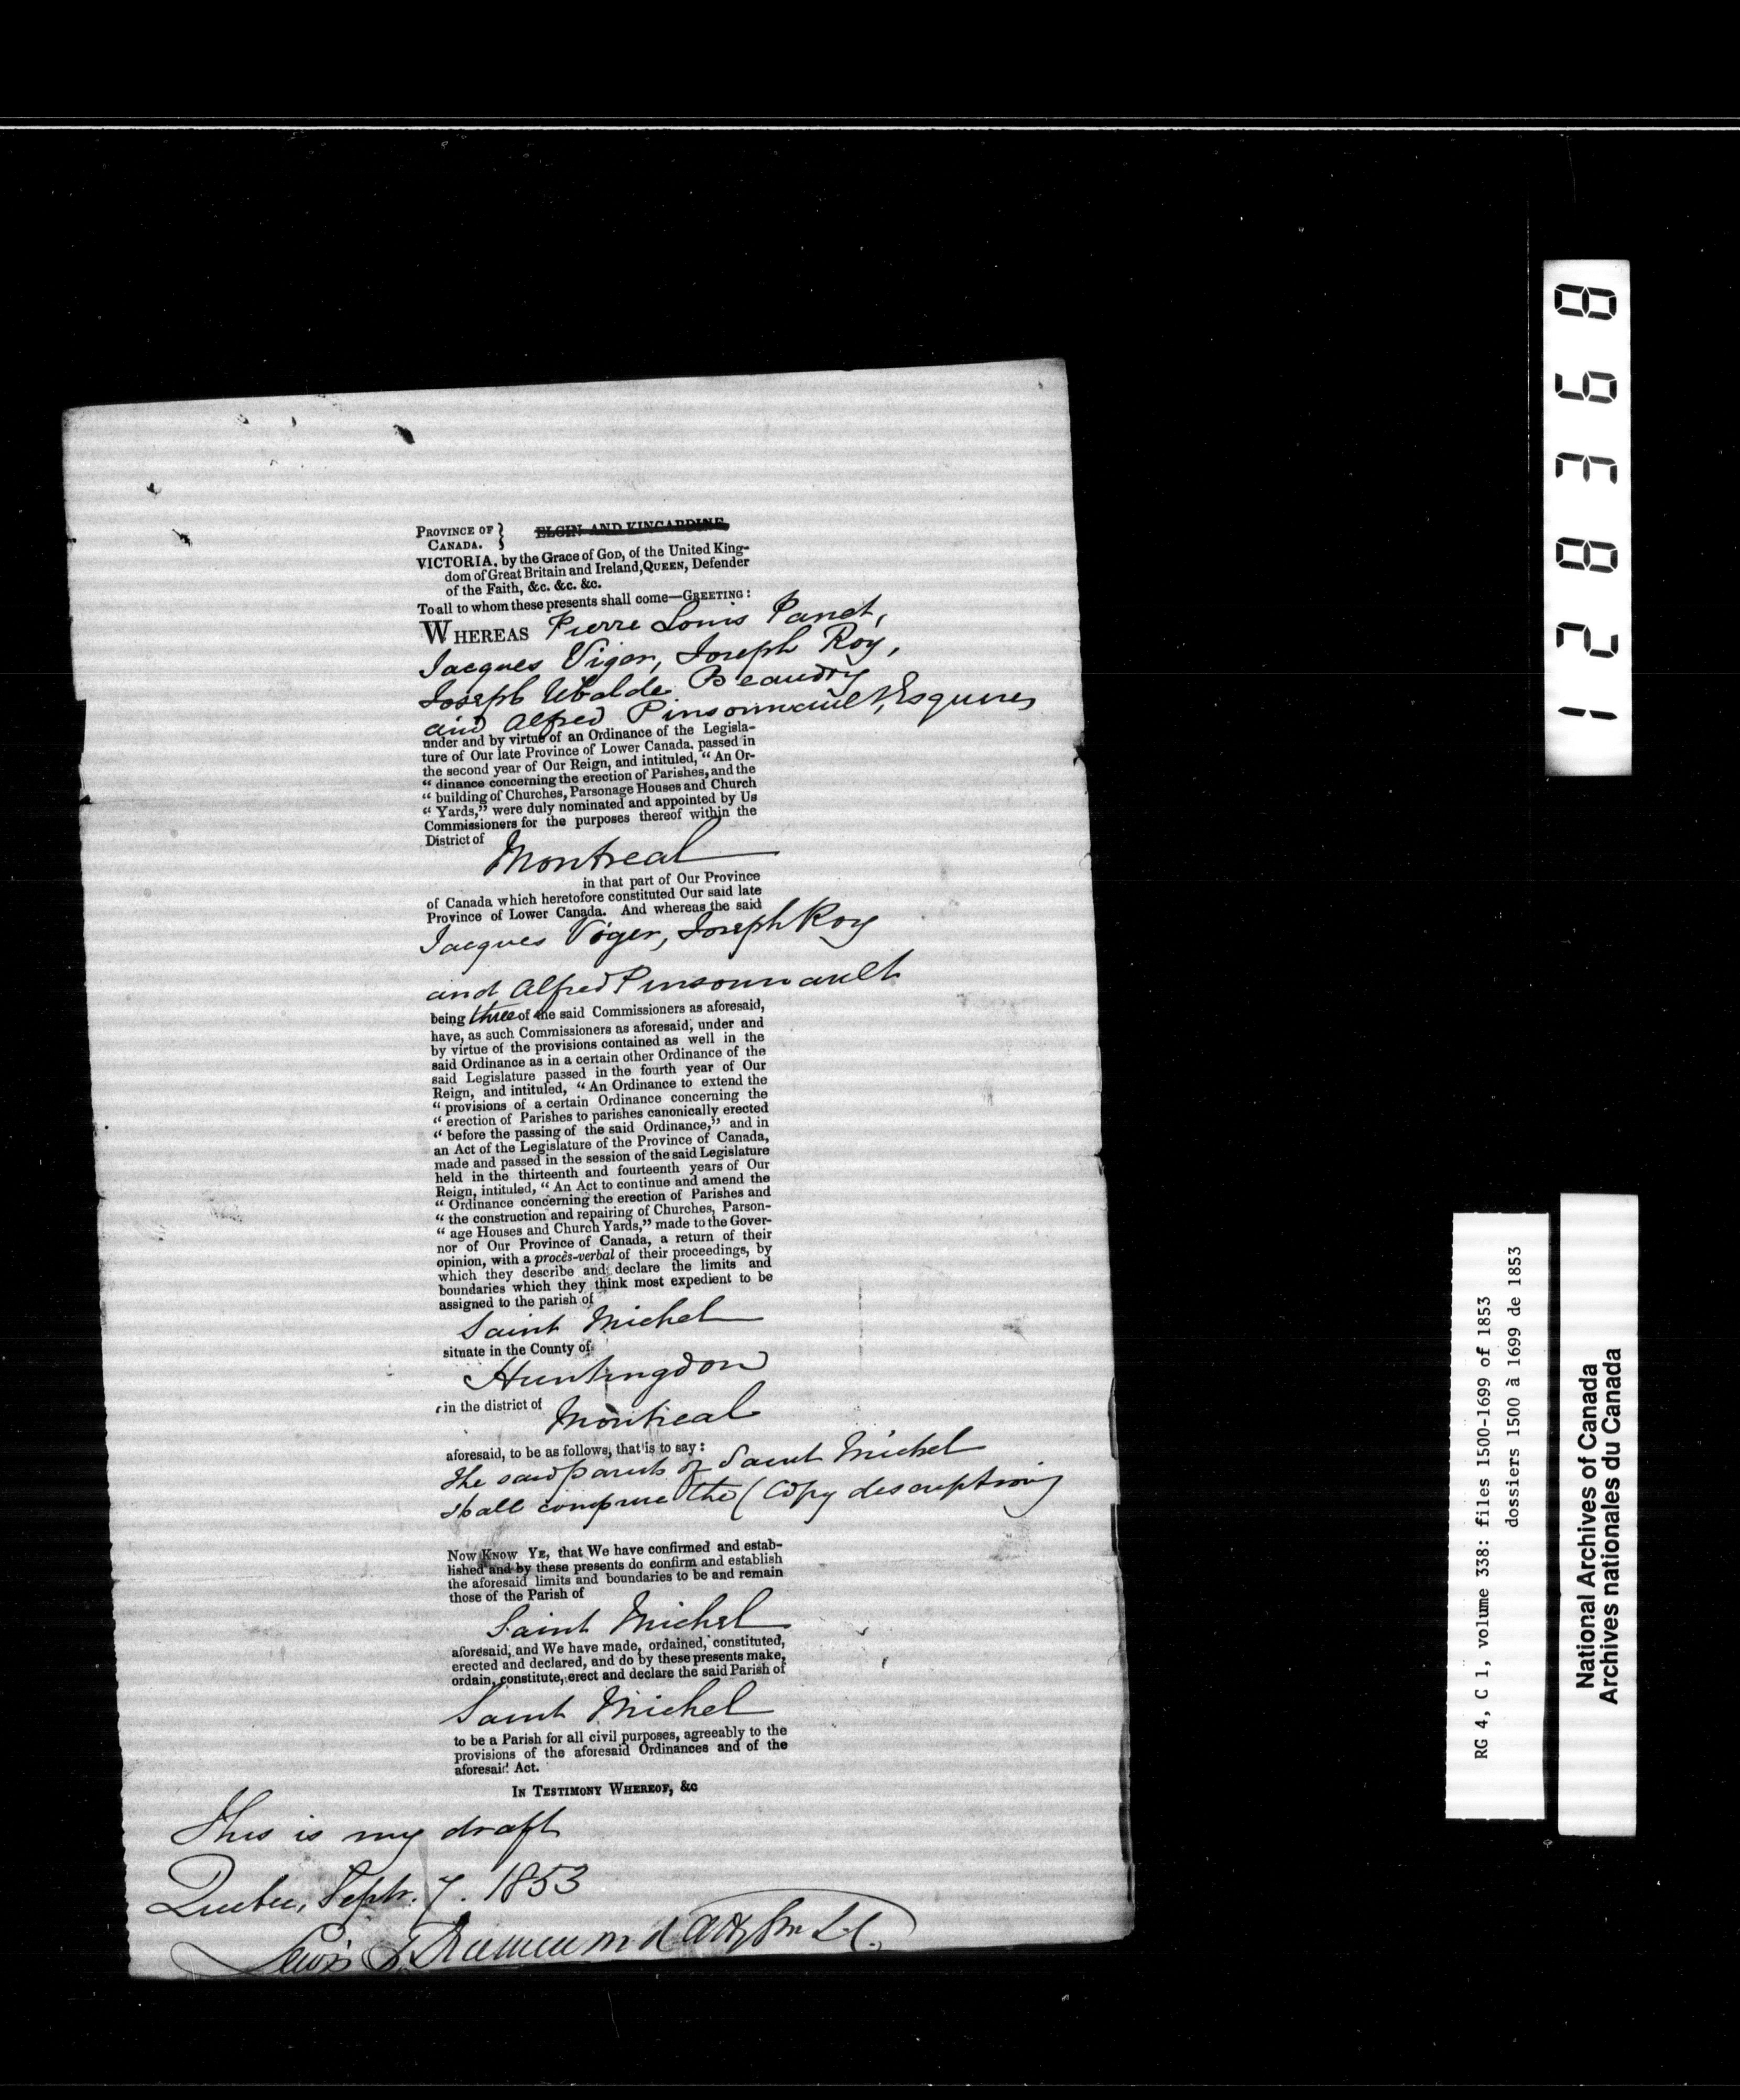 PROVINCE OF } ELGIN AND KINCARDINE.
CANADA.
VICTORIA, by the Grace of GOD, of the United King-
dom of Great Britain and Ireland, QUEEN, Defender
of the Faith, &c. &c. &c.
To all to whom these presents shall come—GREETING:
WHEREAS Pierre Louis Panet,
Jacques Viger, Joseph Roy,
Joseph Ubalde Beaudry
and Alfred Pinsonnault, Esquires
under and by virtue of an Ordinance of the Legisla-
ture of Our late Province of Lower Canada, passed in
the second year of Our Reign, and intituled, “ An Or-
“ dinance concerning the erection of Parishes, and the
“ building of Churches, Parsonage Houses and Church
“ Yards,” were duly nominated and appointed by Us
Commissioners for the purposes thereof within the
District of
Montreal
in that part of Our Province
of Canada which heretofore constituted Our said late
Province of Lower Canada. And whereas the said
Jacques Viger, Joseph Roy
and Alfred Pinsonnault
being three of the said Commissioners as aforesaid,
have, as such Commissioners as aforesaid, under and
by virtue of the provisions contained as well in the
said Ordinance as in a certain other Ordinance of the
said Legislature passed in the fourth year of Our
Reign, and intituled, “ An Ordinance to extend the
“ provisions of a certain Ordinance concerning the
“ erection of Parishes to parishes canonically erected
“ before the passing of the said Ordinance,” and in
an Act of the Legislature of the Province of Canada,
made and passed in the session of the said Legislature
held in the thirteenth and fourteenth years of Our
Reign, intituled, “ An Act to continue and amend the
“ Ordinance concerning the erection of Parishes and
“ the construction and repairing of Churches, Parson-
“ age Houses and Church Yards,” made to the Gover-
nor of Our Province of Canada, a return of their
opinion, with a procès-verbal of their proceedings, by
which they describe and declare the limits and
boundaries which they think most expedient to be
assigned to the parish of
Saint Michel
situate in the County of
Huntingdon
in the district of
Montreal
aforesaid, to be as follows, that is to say:
The said parish of Saint Michel
shall comprise the (Copy description)
NOW KNOW YE, that We have confirmed and estab-
lished and by these presents do confirm and establish
the aforesaid limits and boundaries to be and remain
those of the Parish of
Saint Michel
aforesaid, and We have made, ordained, constituted,
erected and declared, and do by these presents make,
ordain, constitute, erect and declare the said Parish of
Saint Michel
to be a Parish for all civil purposes, agreeably to the
provisions of the aforesaid Ordinances and of the
aforesaid Act.
IN TESTIMONY WHEREOF, &c
This is my draft
Quebec, Septr. 7. 1853
Lewis T. Drummond Atty Gen L.C.
128368
RG 4, C 1, volume 338: files 1500-1699 of 1853
dossiers 1500 à 1699 de 1853
National Archives of Canada
Archives nationales du Canada